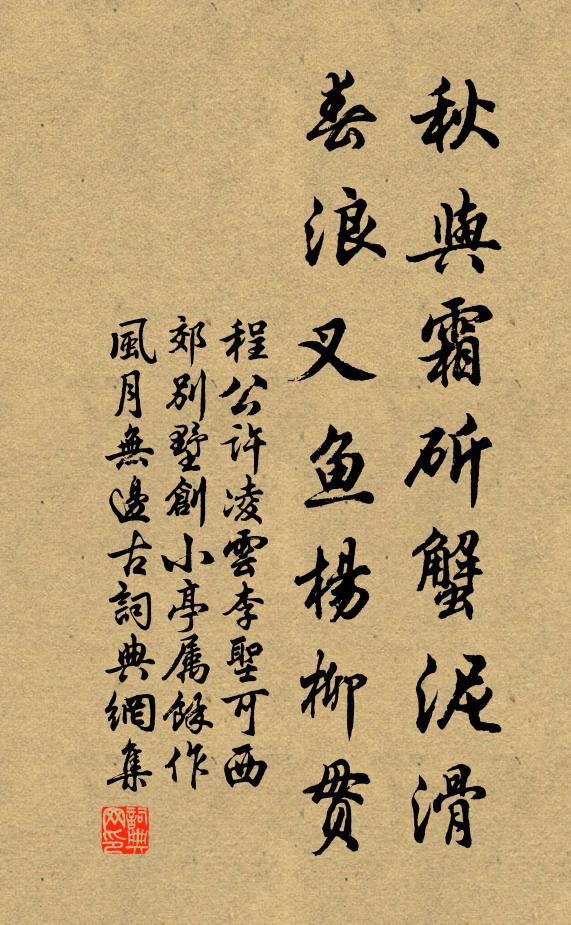 秋與霜斫蟹泥滑
春浪叉鱼楊柳貫
程公許凌雲李聖可西
郊別墅創小亭属餘作
風月無邊古詞典網集
詞典網印